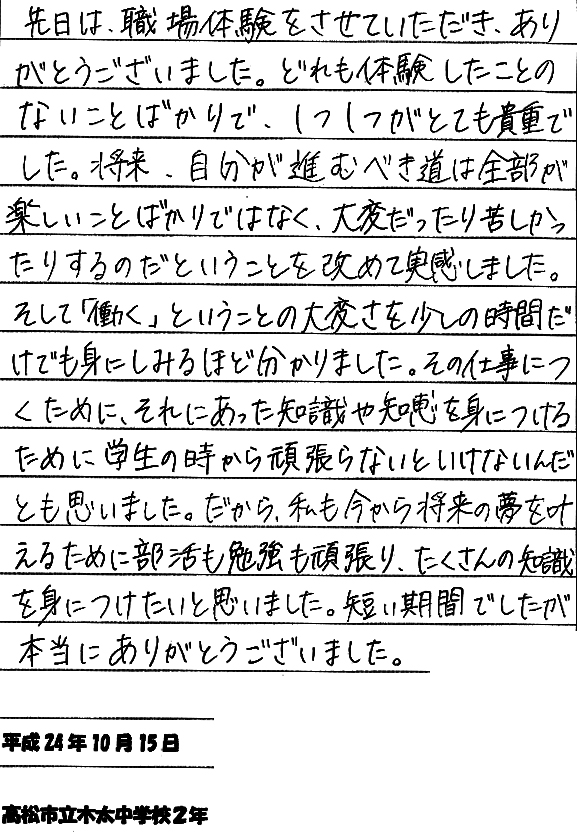 先日は、職場体験をさせていただき、あり
がとうございました。どれも体験したことの
ないことばかりで、1つ1つがとても貴重で
した。将来、自分が進むべき道は全部が
楽しいことばかりではなく、大変だったり苦しかっ
たりするのだということを改めて実感しました。
そして「働く」ということの大変さを少しの時間だ
けでも身にしみるほど分かりました。その仕事につ
くために、それにあった知識や知恵を身につける
ために学生の時から頑張らないといけないんだ
とも思いました。だから、私も今から将来の夢を叶
えるために部活も勉強も頑張り、たくさんの知識
を身につけたいと思いました。短い期間でしたが
本当にありがとうございました。
平成24年10月15日
高松市立木太中学校2年